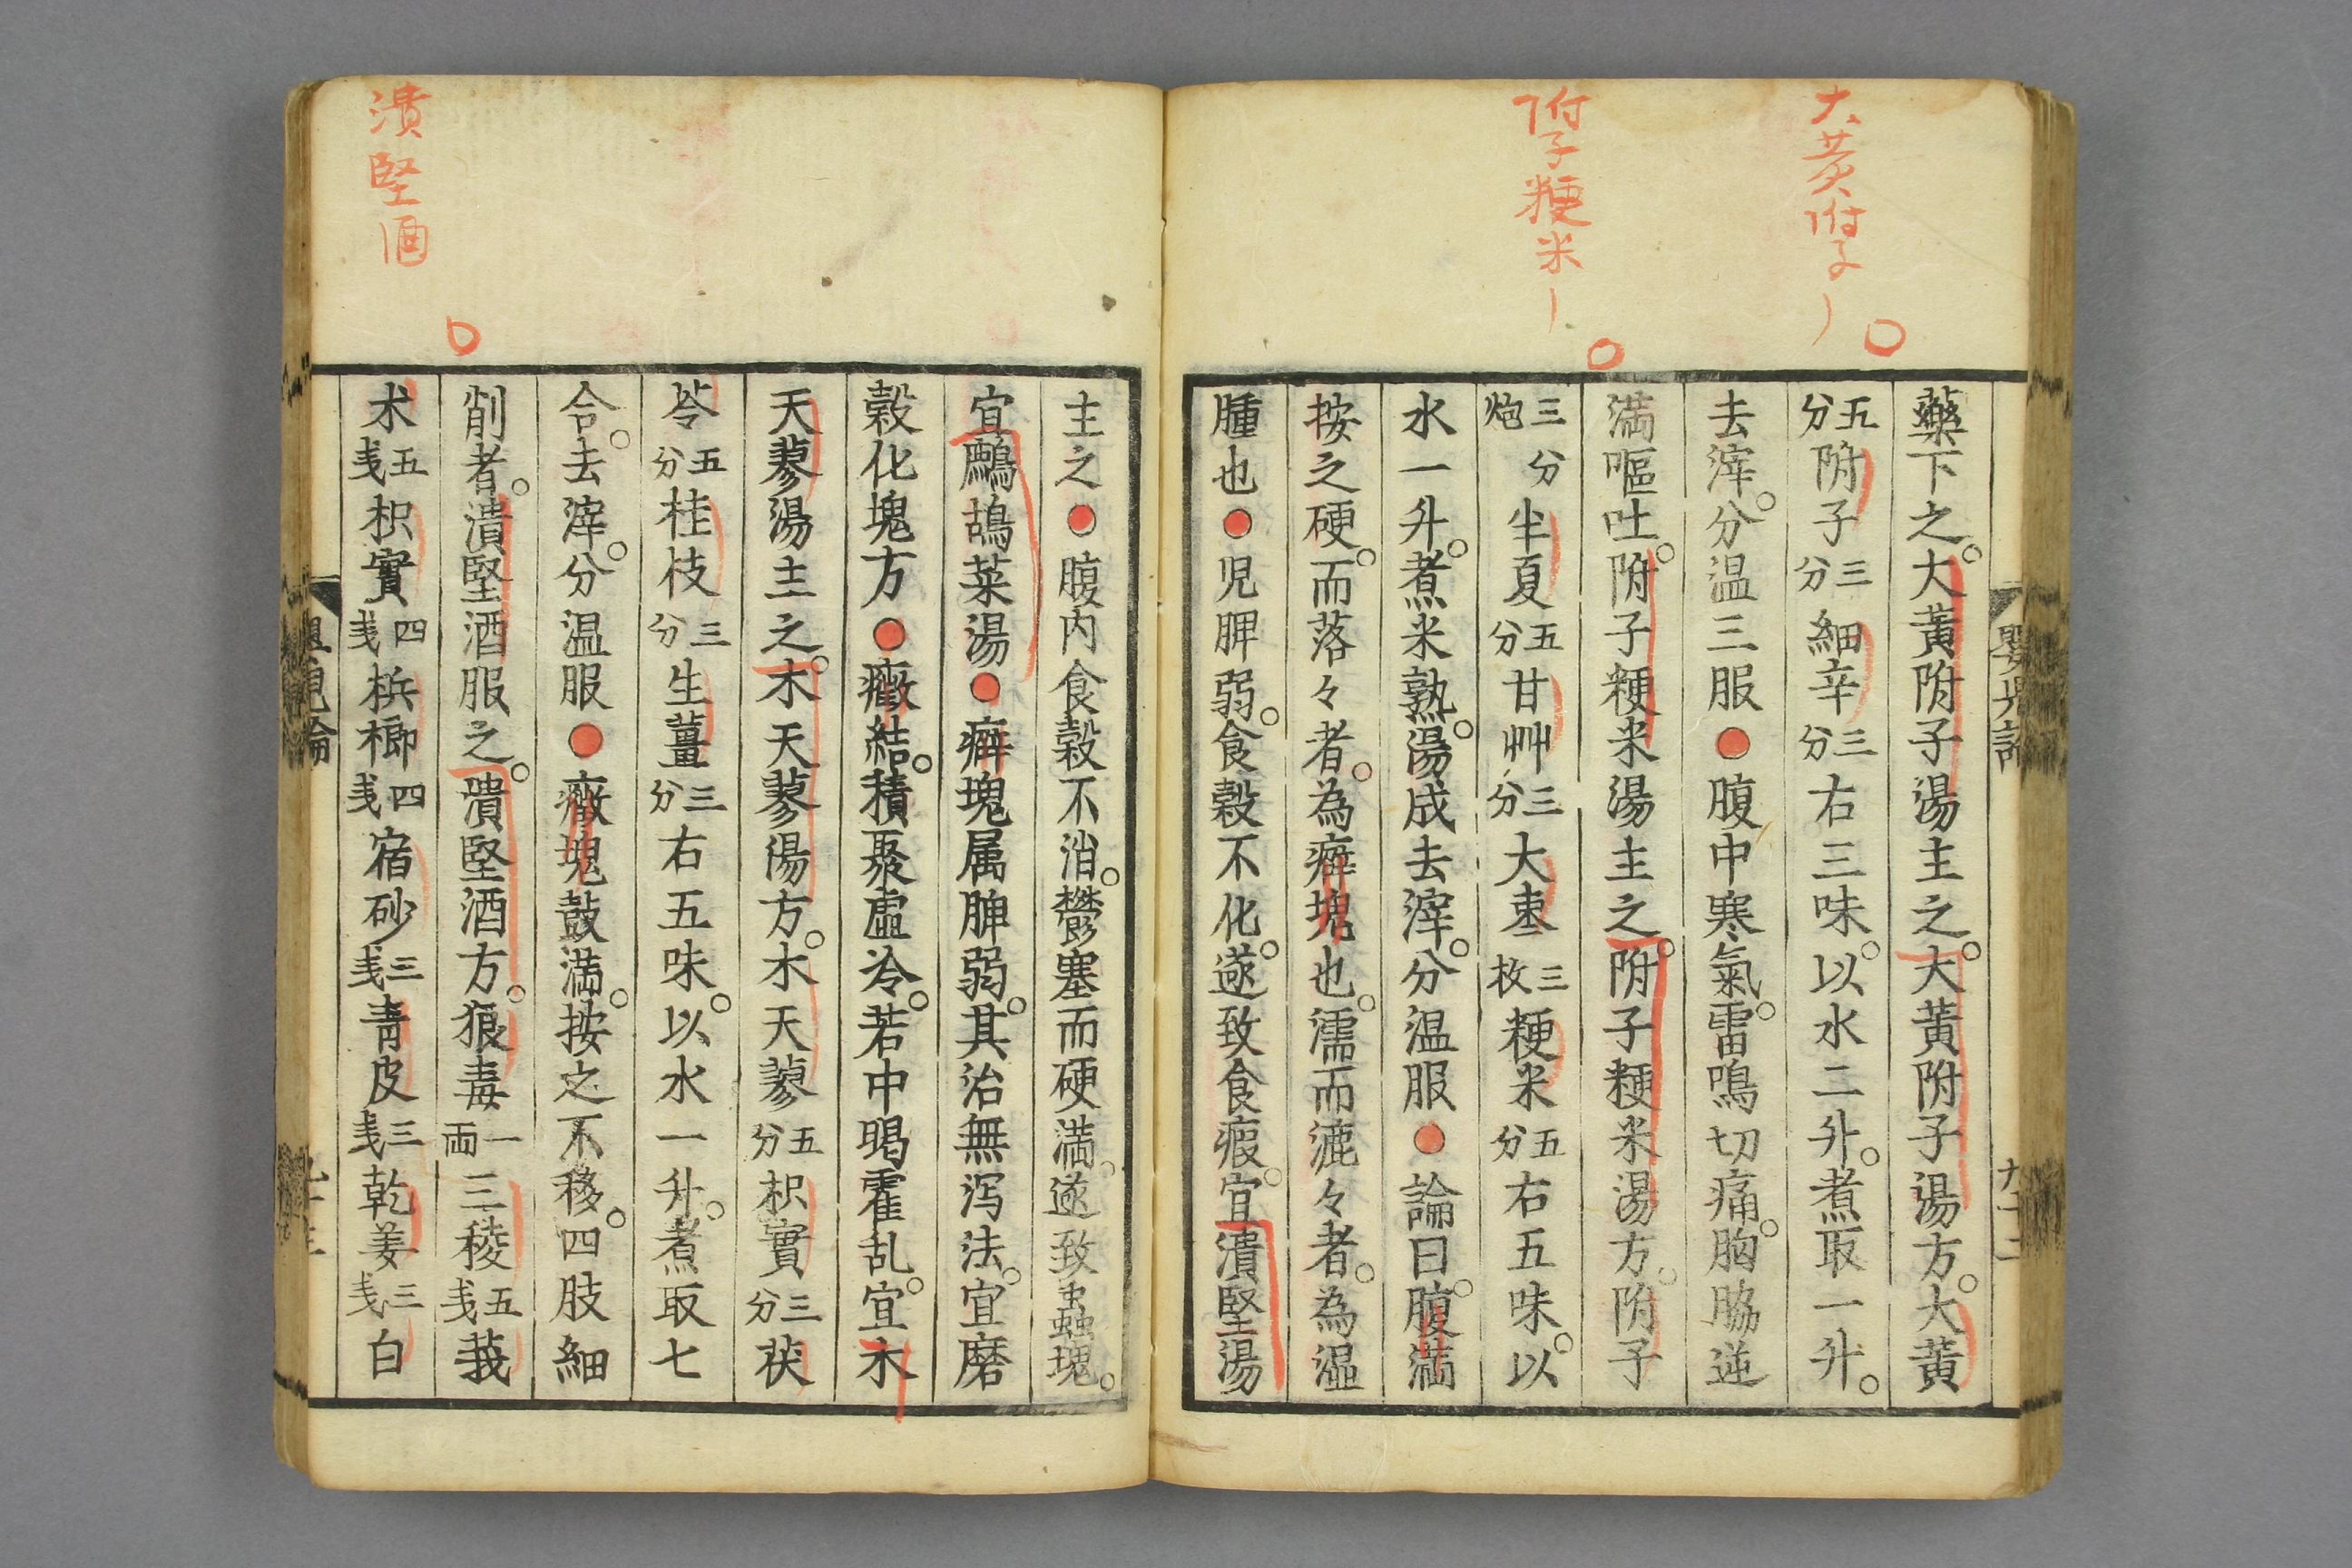 大黄附子〡
附子粳米〡
藥下之大黄附子湯主之大黄附子湯方大黄
五分附子三分細辛三分右三味以水二升煮取一升
去滓分温三服●腹中寒氣雷鳴切痛胸脇逆
満嘔吐附子粳米湯主之附子粳米湯方附子
三分炮半夏五分甘艸三分大棗三枚粳米五分右五味以
水一升煮米熟湯成去滓分温服●論曰腹満
按之硬而落々者為癖塊也濡而漉々者為湿
腫也●児脾弱食穀不化遂致食瘕宜潰堅湯
潰堅酒
主之●腹内食穀不消鬱塞而硬満遂致虫蟲塊
宜鷓鴣菜湯●癖塊属脾弱其治無泻法宜磨
穀化塊方●癥結積聚虚冷若中暍霍乱宜木
天蓼湯主之木天蓼湯方木天蓼五分枳實三分茯
苓五分桂枝三分生薑三分右五味以水一升煮取七
合去滓分温服●癥塊鼓満按之不移四肢細
削者潰堅酒服之潰堅酒方狼毒一両三稜五戔莪
朮五戔枳實四戔梹榔四戔宿砂三戔青皮三戔乾姜三戔白